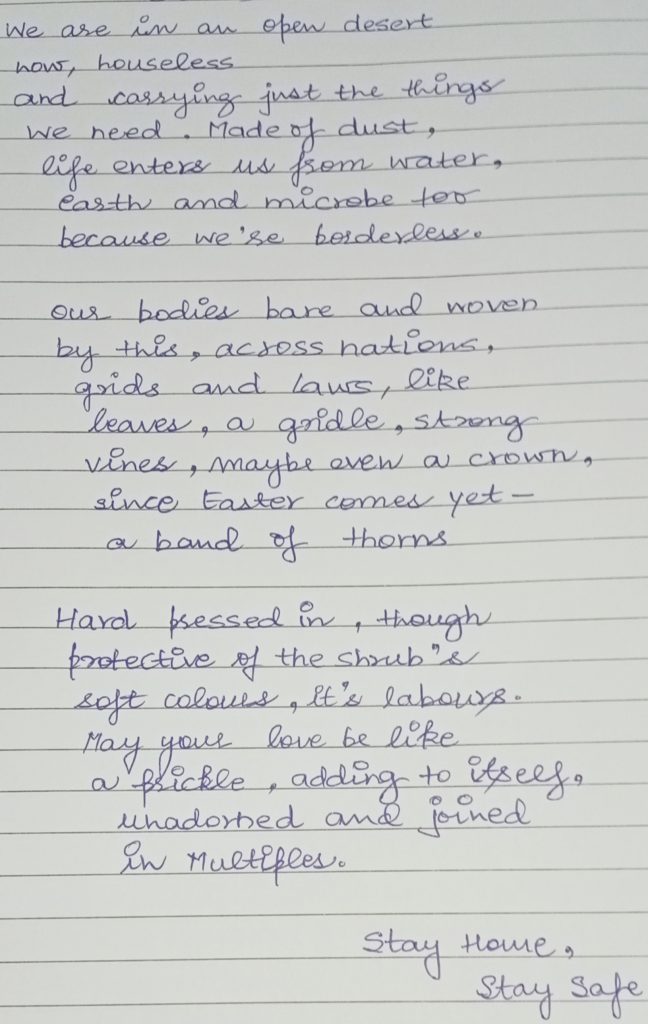 We are in an open desert
now, houseless
and carrying just the things
we need. Made of dust,
life enters us from water,
earth and microbe too
because we're borderless.
Our bodies bare and woven
by this, across nations,
grids and laws, like
leaves, a gridle, strong
vines, maybe even a crown,
since Easter comes yet -
a band of thorns
Hard pressed in, though
protective of the shrub's
soft colours, it's labours.
May your love be like
a prickle, adding to itself,
unadorned and joined
in Multiples.
Stay Home,
Stay Safe